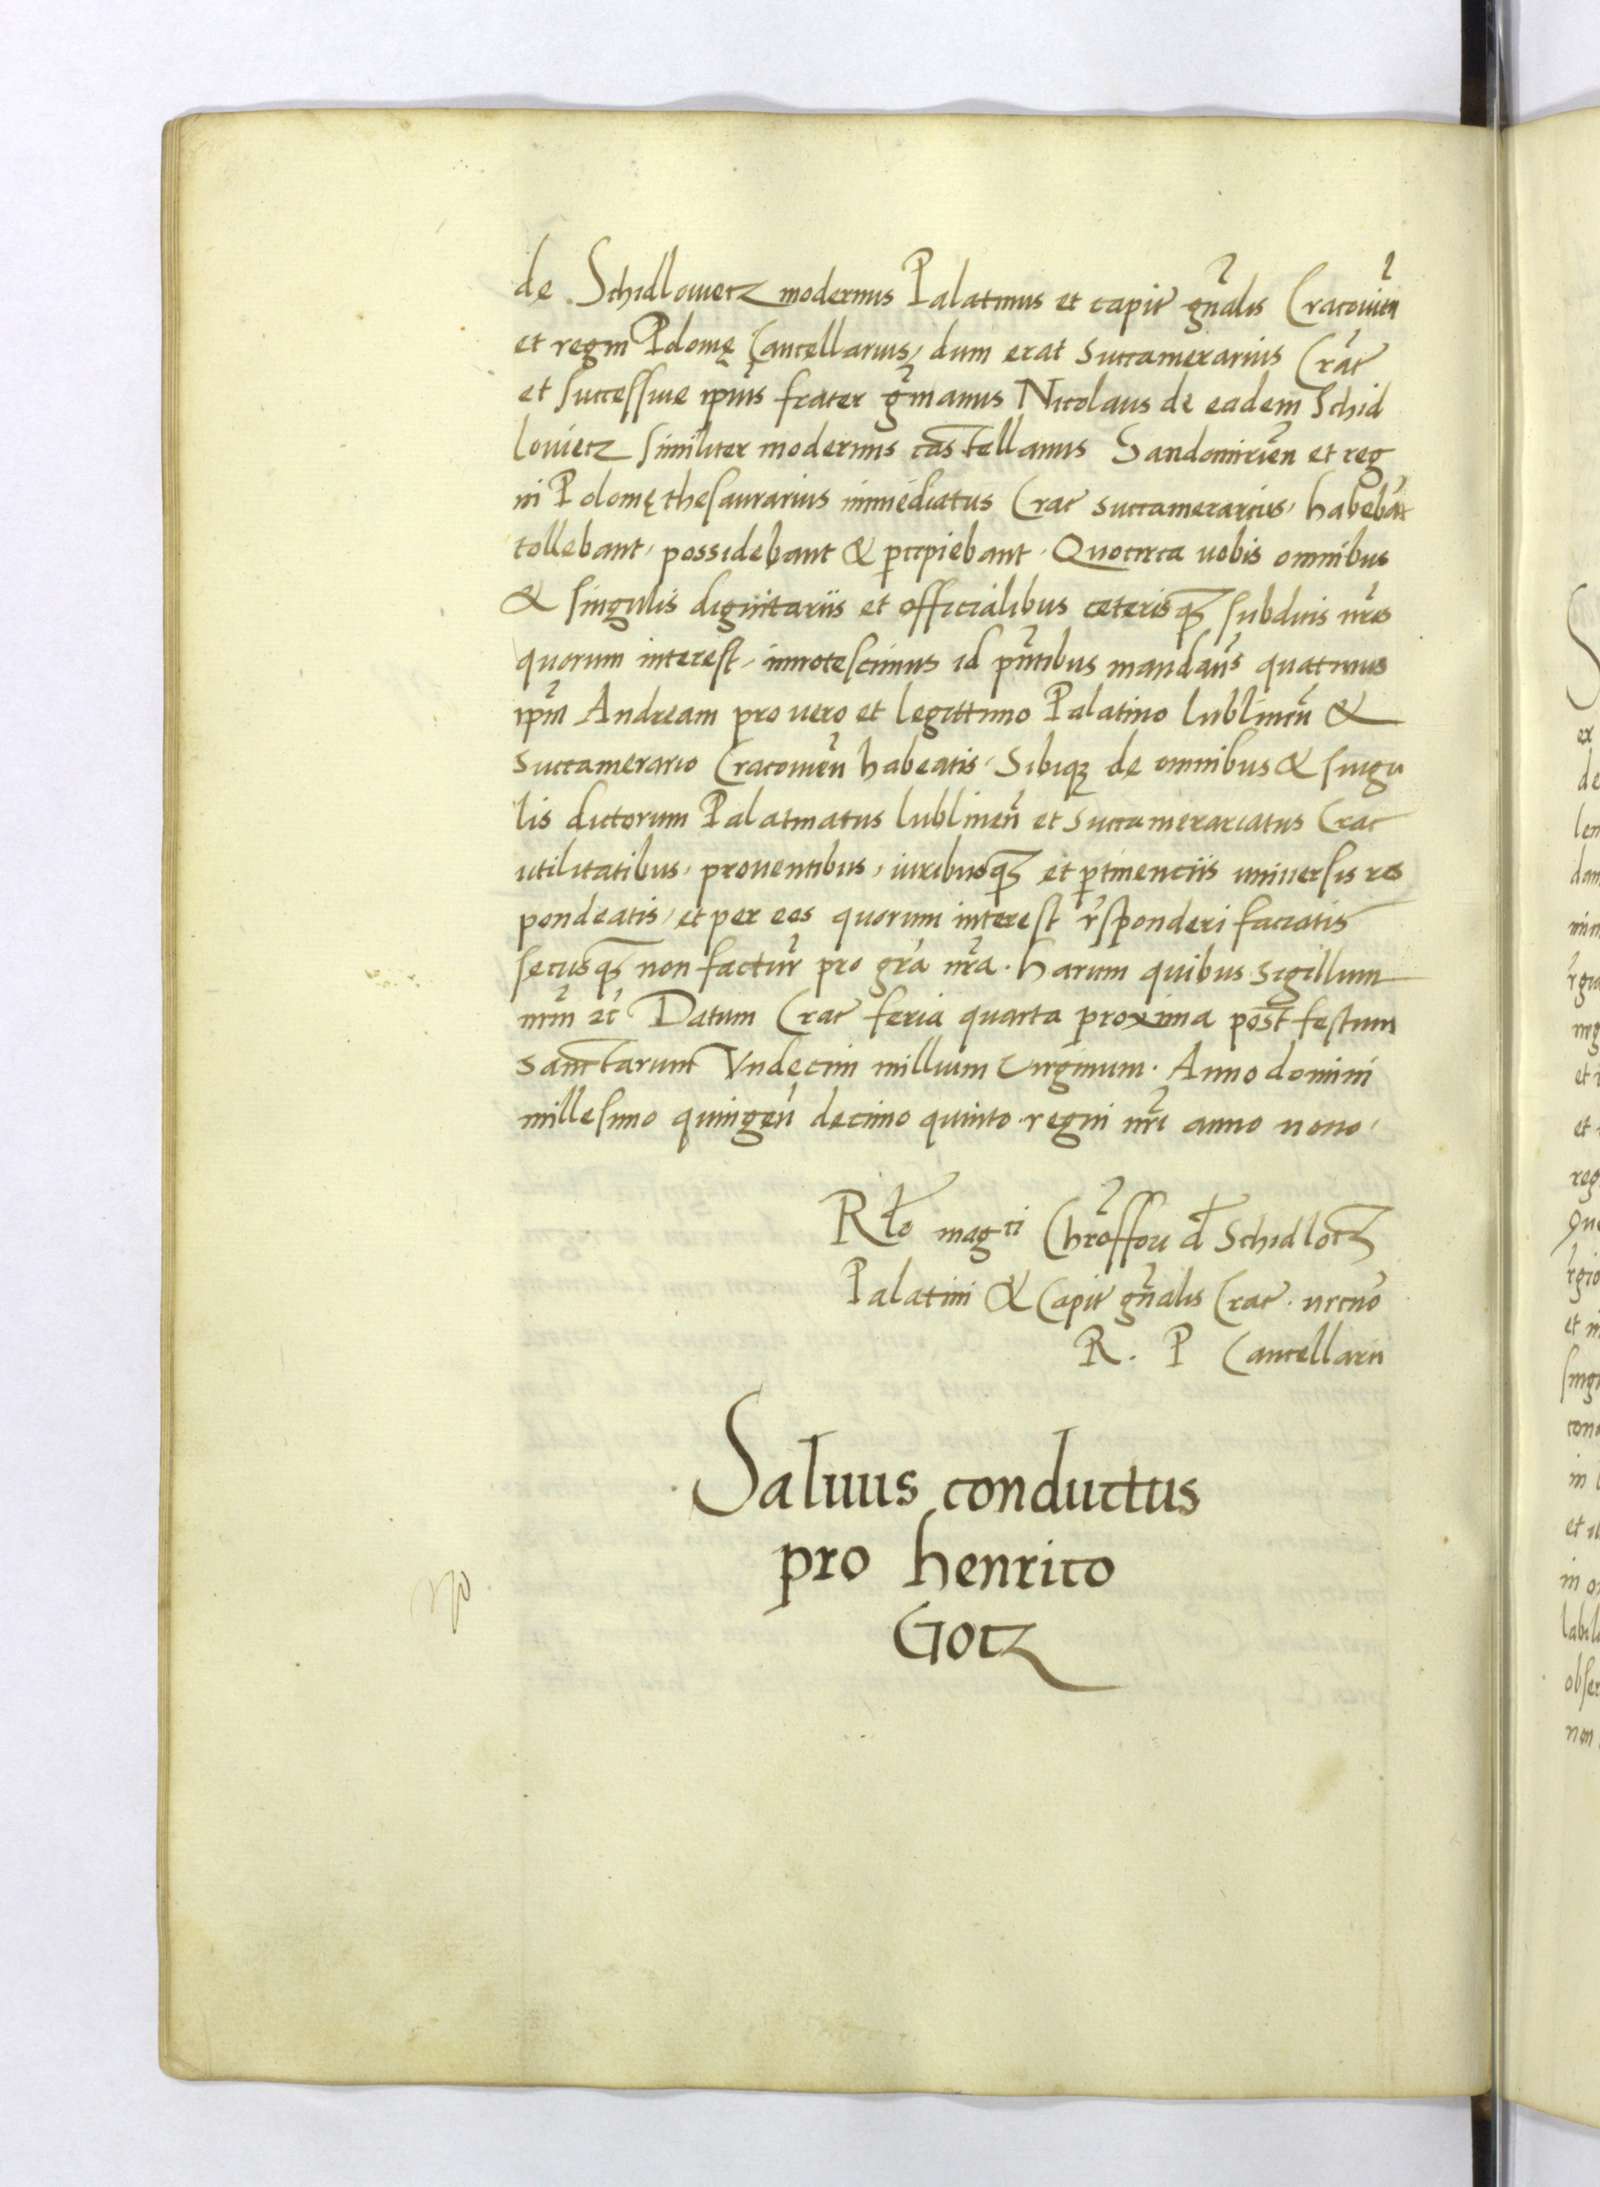 de Schidlowetz modernus Palatinus et capit gn̄alis Cracoviēn
et regni Polonię Cancellarius, dum erat Succamerarius Crac̄
et successiue ip̄ius frater gm̄anus Nicolaus de eadem Schid
lovietz similiter modernus castellanus Sandomiriēn et reg
ni Polonię thesaurarius inmediatus Crac succamerarius, habebāt
tollebant, possidebant & p̄cipiebant. Quocirca uobis omnibus
& singulis dignitariis et officialibus ceterisq̄ subditis nr̄is
quorum interest, innotescimus id pn̄tibus mandan̄s quatinus
ip̄m Andream pro uero et legittimo Palatino lublineñ &
Succamerario Cracouieñ habeatis. Sibiq; de omnibus & singu
lis dictorum Palatinatus lublineñ et Succamerariatus Crac
utilitatibus, prouentibus, iuribusq̄ et p̄tinenciis uniuersis res
pondeatis, et per eos quorum interest r̄sponderi faciatis
secusq̄ non factur̄ pro gr̄a nr̄a. harum quibus sigillum
nr̄m ꝛc̄ Datum Crac feria quarta proxima post festum
Sanctarum Vndecim millium Virginum. Anno domini
millesimo quingeñ decimo quinto regni nr̄i anno nono,
Rło magci Chrõffori đ Schidlotz
Palatini & Capit gn̄alis Crac
R. P Cancellarii
Saluus conductus
pro henrico
Gotz